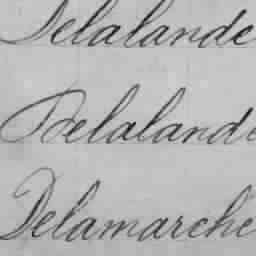 Delalande
Delalande
Delamarche